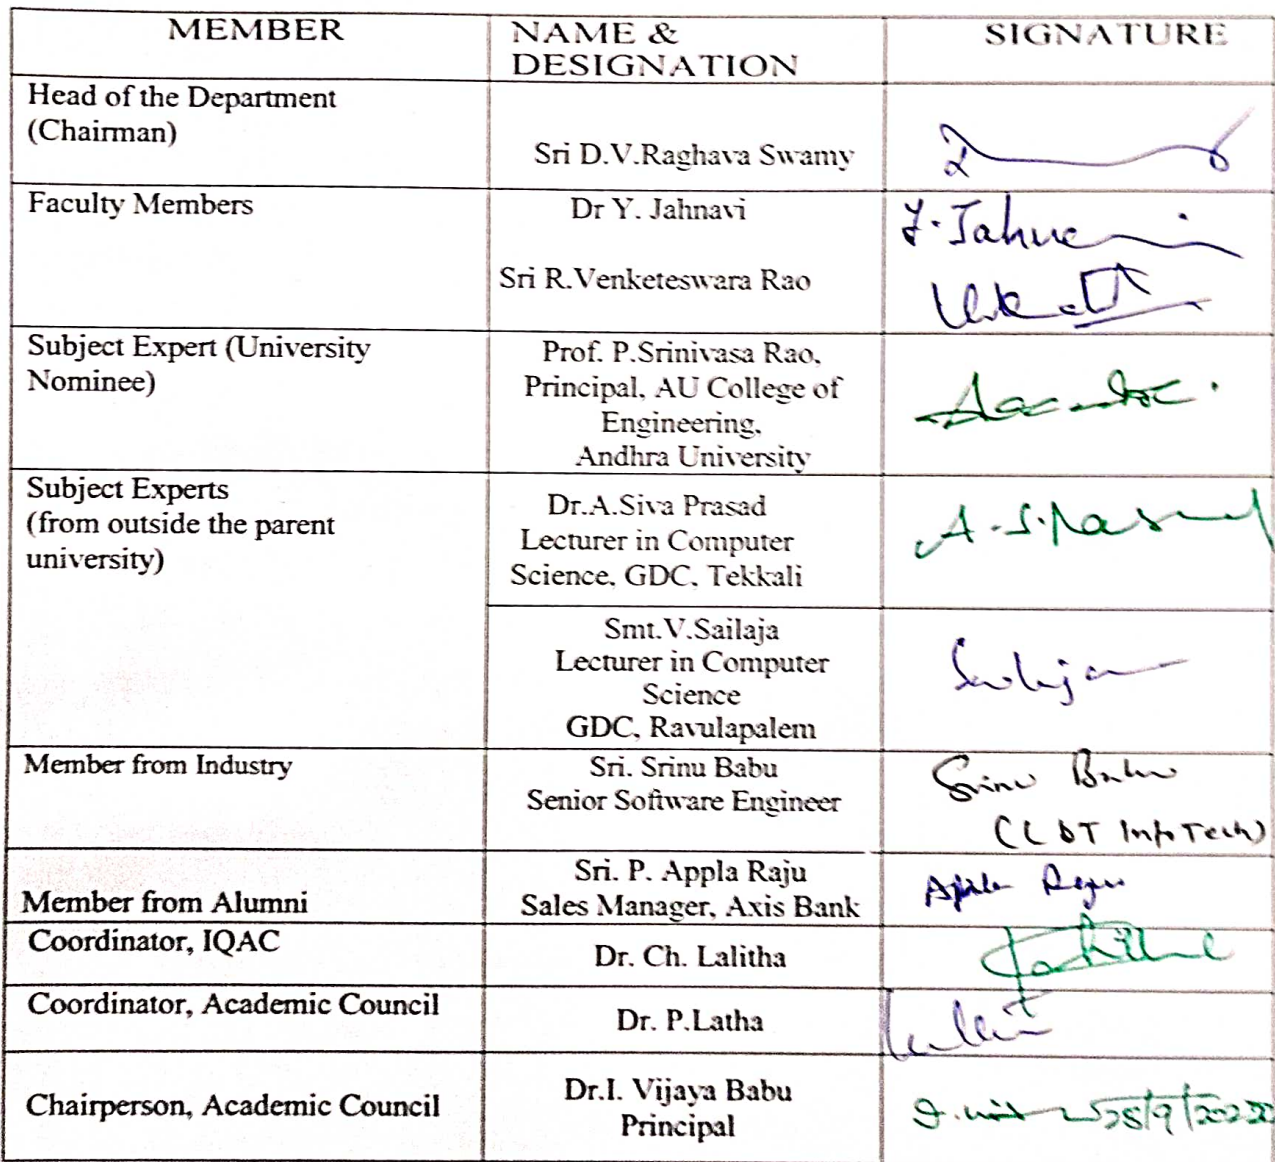 MEMBER
NAME &
DESIGNATION
SIGNATURE
Head of the Department
(Chairman)
Sri D.V.Raghava Swamy
Faculty Members
Dr Y. Jahnavi
Y. Jahnavi
Sri R.Venketeswara Rao
Subject Expert (University
Nominee)
Prof. P.Srinivasa Rao,
Principal, AU College of
Engineering,
Andhra University
Subject Experts
(from outside the parent
university)
Dr.A.Siva Prasad
Lecturer in Computer
Science, GDC, Tekkali
A. S. Prasad
Smt.V.Sailaja
Lecturer in Computer
Science
GDC, Ravulapalem
Sailaja
Member from Industry
Sri. Srinu Babu
Senior Software Engineer
Srinu Babu
(L &T InfoTech)
Member from Alumni
Sri. P. Appla Raju
Sales Manager, Axis Bank
Appla Raju
Coordinator, IQAC
Dr. Ch. Lalitha
Coordinator, Academic Council
Dr. P.Latha
Chairperson, Academic Council
Dr.I. Vijaya Babu
Principal